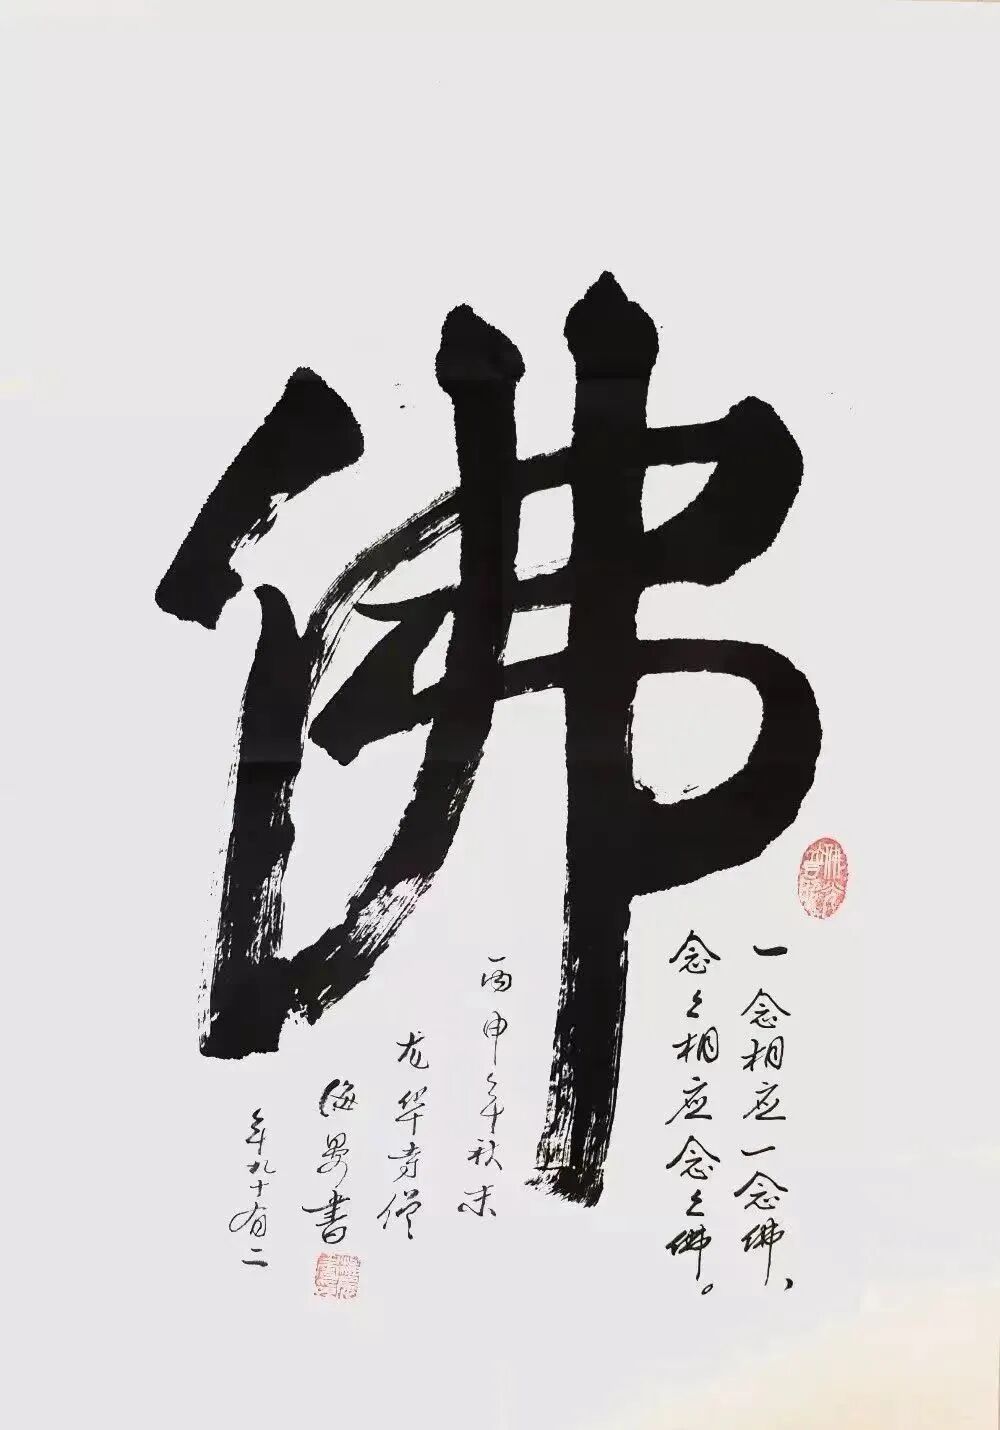 佛
一念相应一念佛、
念々相应念々佛。
丙申年秋末
龙华寺僧
書
年九十有二